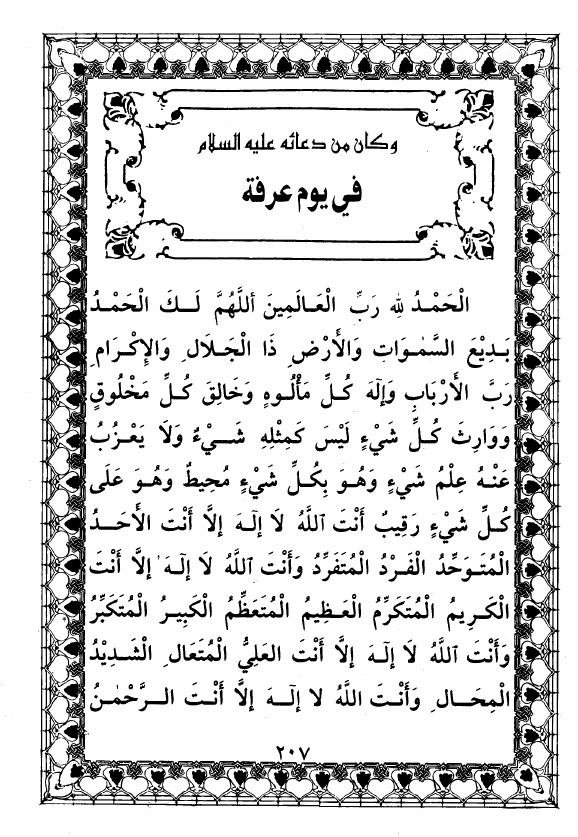 وكان من دعائه عليه السلام
في يوم عرفة
الْحَمْـدُ لِلهِ رَبِّ الْعَـالَمِينَ أللَّهُمَّ لَـكَ الْحَمْـدُ
بَـدِيْعَ السَّمٰـوَاتِ وَالْأَرْضِ ذَا الْجَـلَالِ وَالإِكْـرَامِ
رَبَّ الأَرْبَـابِ وَإِلٰهَ كُـلِّ مَأْلُـوهٍ وَخَالِقَ كُـلِّ مَخْلُوقٍ
وَوَارِثَ كُـلِّ شَيْءٍ لَيْسَ كَمِثْلِهِ شَـيْءٌ وَلَا يَعْـزُبُ
عَنْـهُ عِلْمُ شَيْءٍ وَهُـوَ بِكُـلِّ شَيْءٍ مُحِيطٌ وَهُـوَ عَلَى
كُـلِّ شَيْءٍ رَقِيبٌ أَنْتَ اللَّهُ لَا إِلٰـهَ إِلَّا أَنْتَ الأَحَـدُ
الْمُتَـوَحِّدُ الْفَـرْدُ الْمُتَفَرِّدُ وَأَنْتَ اللَّهُ لَا إِلٰـهَ إِلَّا أَنْتَ
الْكَـرِيمُ الْمُتَكَرِّمُ الْعَـظِيمُ الْمُتَعَظِّمُ الْكَبِيـرُ الْمُتَكَبِّرُ
وَأَنْتَ اللَّهُ لَا إِلٰـهَ إِلَّا أَنْتَ العَلِيُّ الْمُتَعَالِ الْشَـدِيْدُ
الْمِحَـالِ وَأَنْـتَ اللَّهُ لا إِلٰـهَ إِلَّا أَنْـتَ الـرَّحْمٰـنُ
٢٠٧